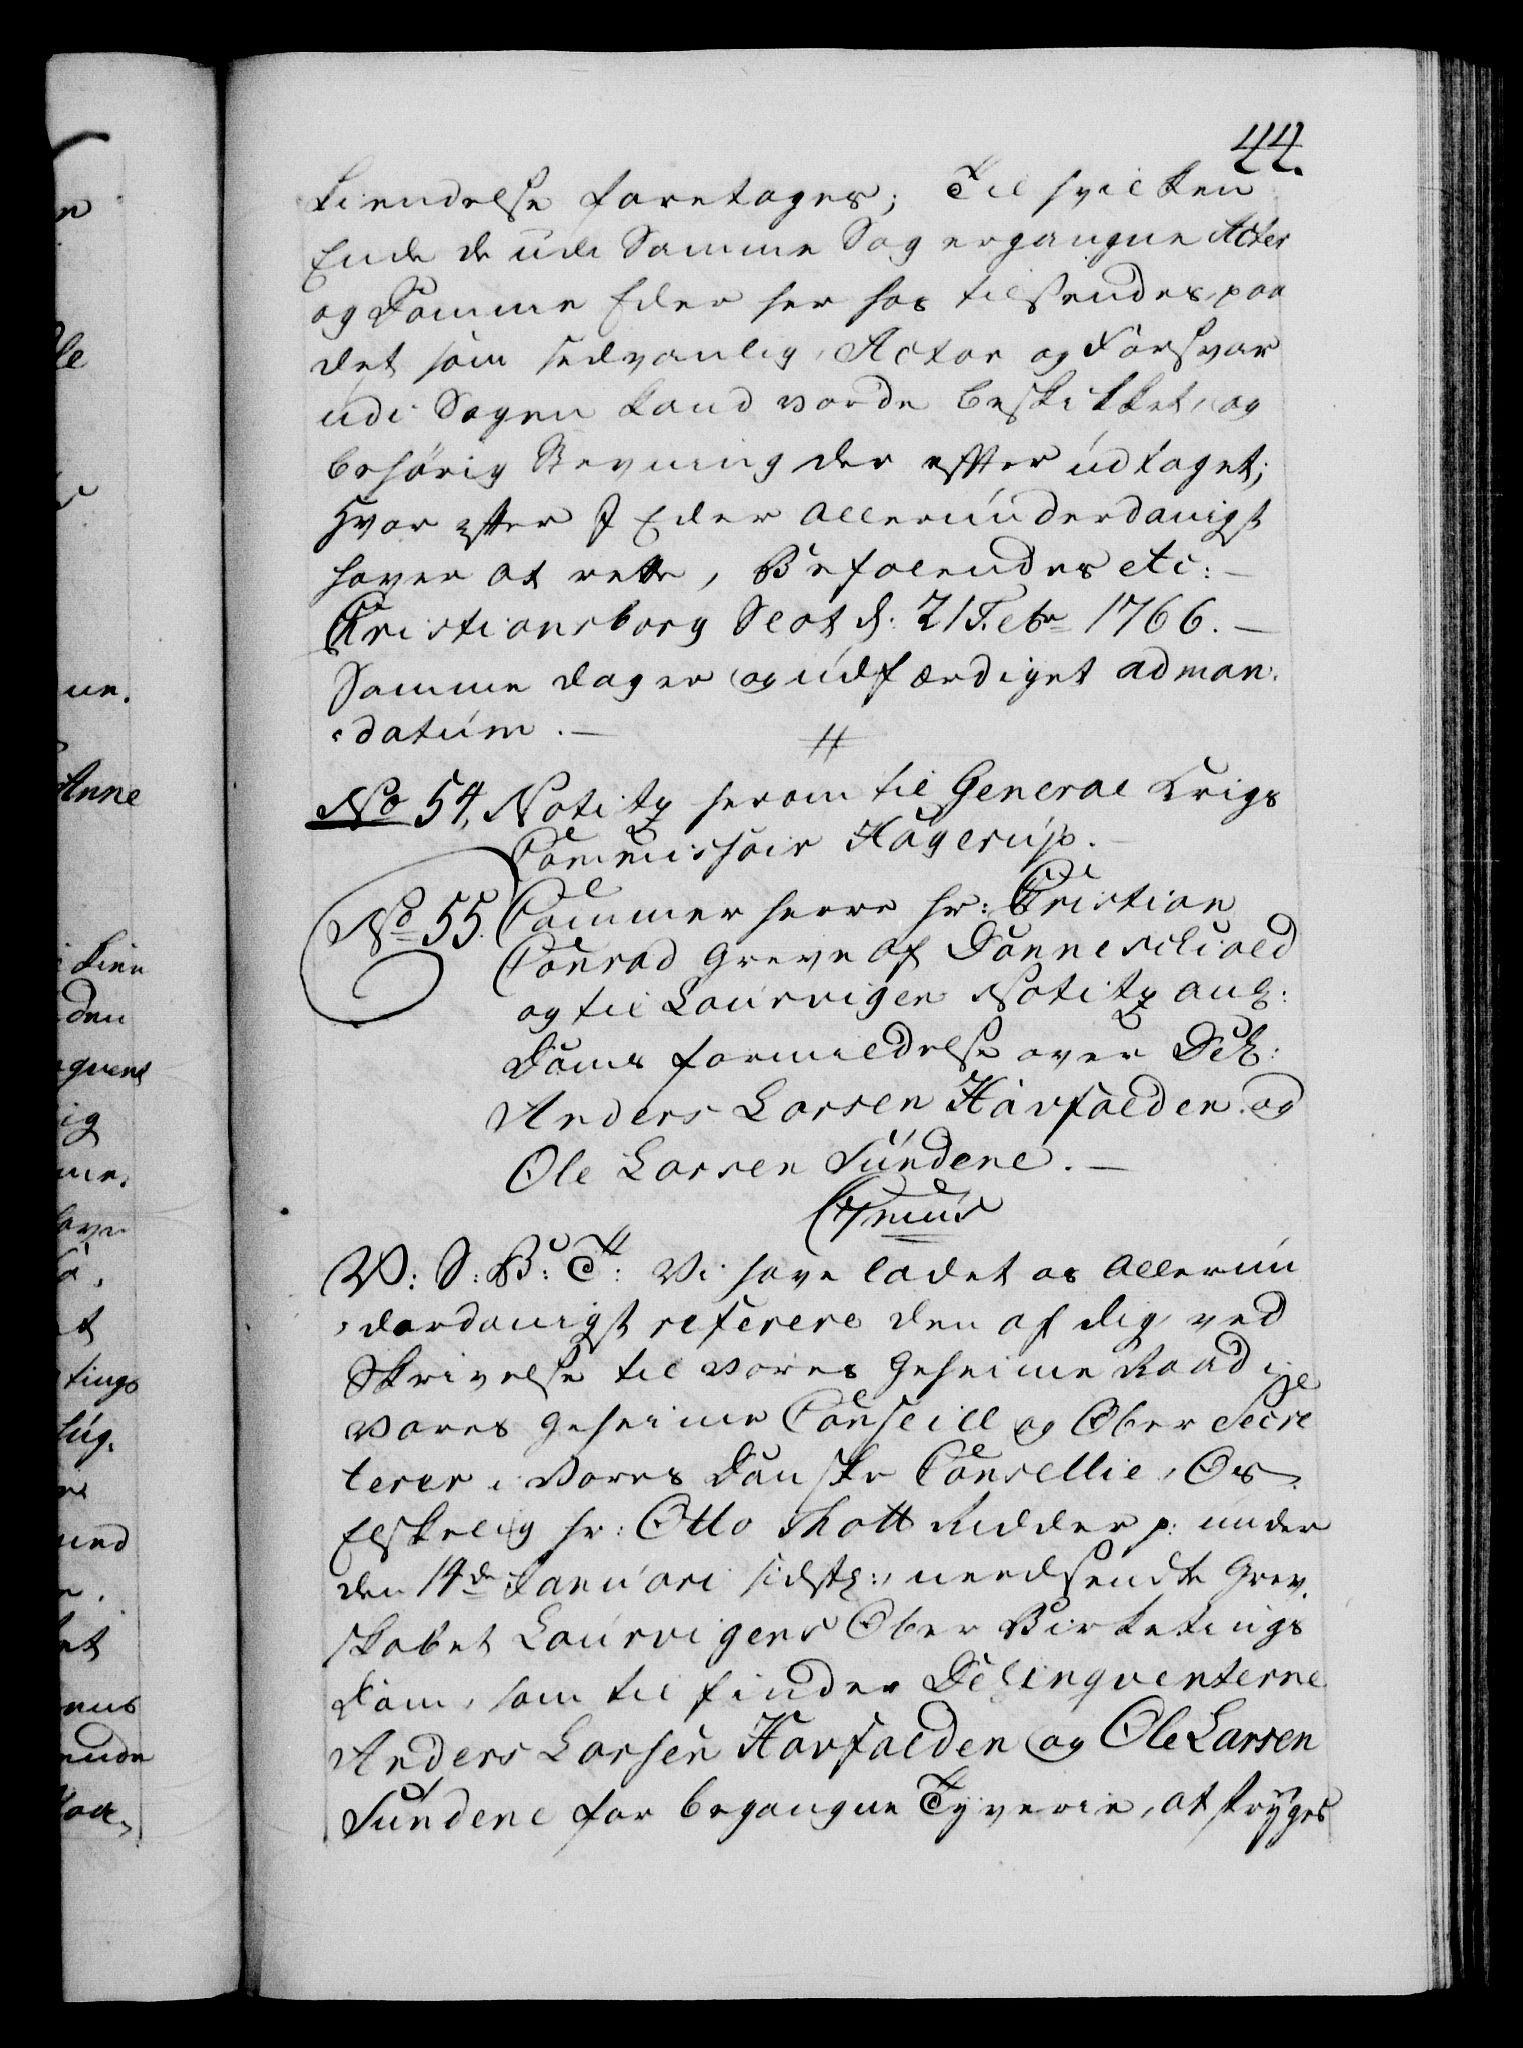 44.
kiendelse foretages; Til hvilken
Ende de udi Samme Sag ergangne Acter
og Domme Eder her hos tilsendes, paa
det som sedvanlig, Actor og Forsvar
udi Sagen kand vorde beskikket, og
behörig Stevning der effter udtaget;
Hvor effter I Eder allerunderdanigst
haver at rette, Befalendes etc: —
Christiansborg Slot d: 21 Febr 1766. —
Samme dag er og udfærdiget ad man-
datum. —
No 54, Notitz herom til General Krigs
Commissair Hagerup. —
No 55. Cammer herre hr: Christian
Conrad Greve af Danneschiold
og til Laurvigen Notitz ang:
Doms formildelse over Del:
Anders Larsen Haufalden og
Ole Larsen Sundene. —
V: S: B: T: Vi have ladet os allerun
derdanigst referere den af dig, ved
Skrivelse til vores Geheime Raad i
vores Geheime Conseill og Ober Secre
terer i vores Danske Cancellie, Os
Elskelig hr: Otto Thott Ridder p: under
den 14de Januari sidstl:, neersendte Grev-
skabet Laurvigens Ober Birketings
Dom, som til finder Delinqventerne
Anders Larsen Haufalden og Ole Larsen
Sundene for begangne Tyverie, at stryges